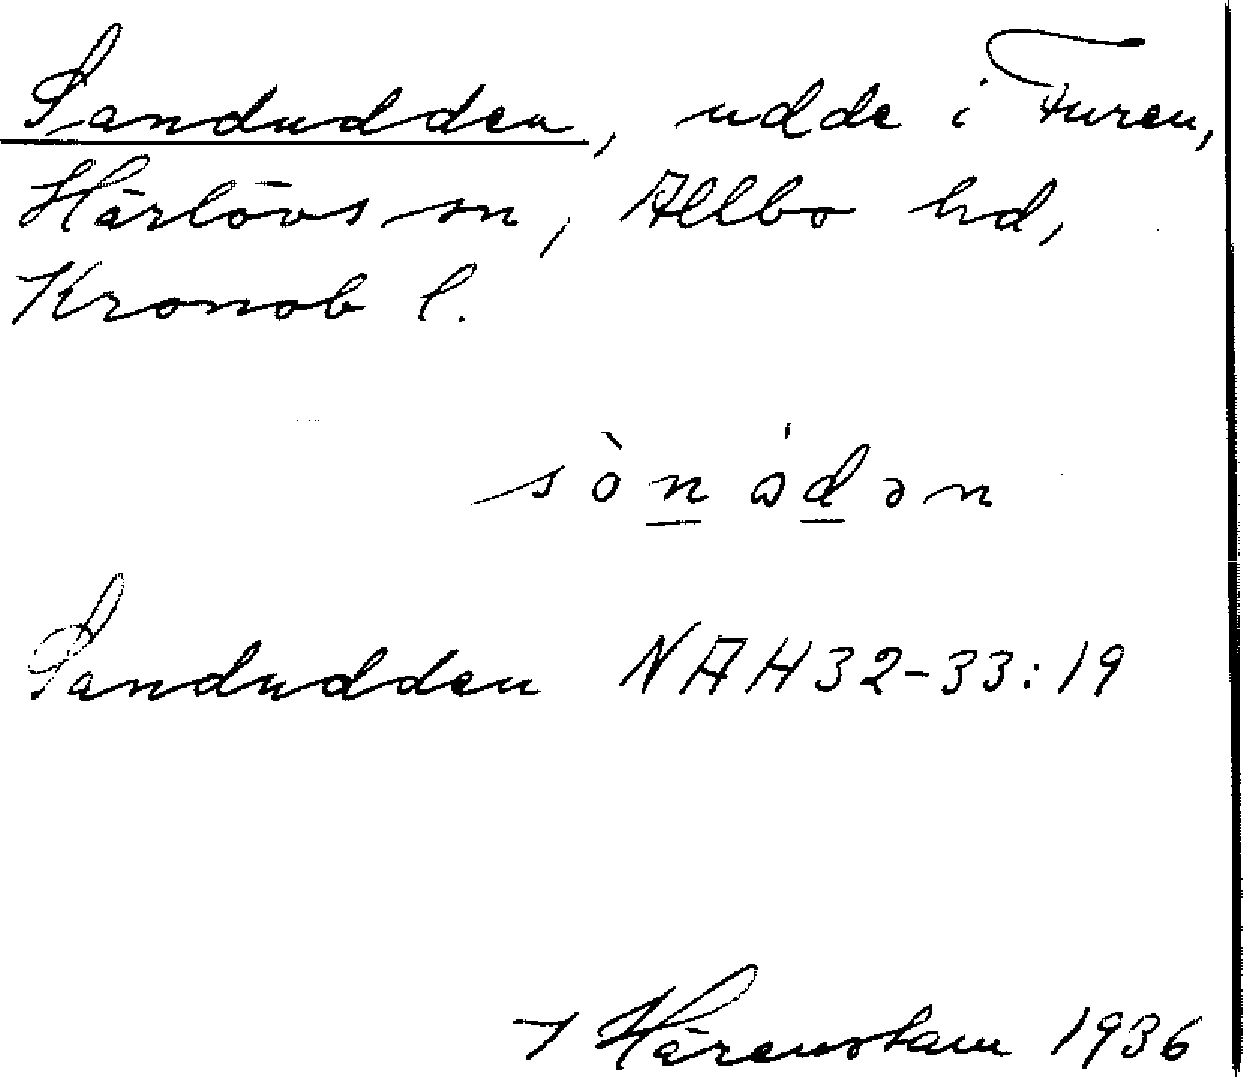 Sandudden, udde i Furen,
Härlövs sn, Allbo hd,
Kronob l.
sònådən
Sandudden NAH32-33:19
I Härenstam 1936